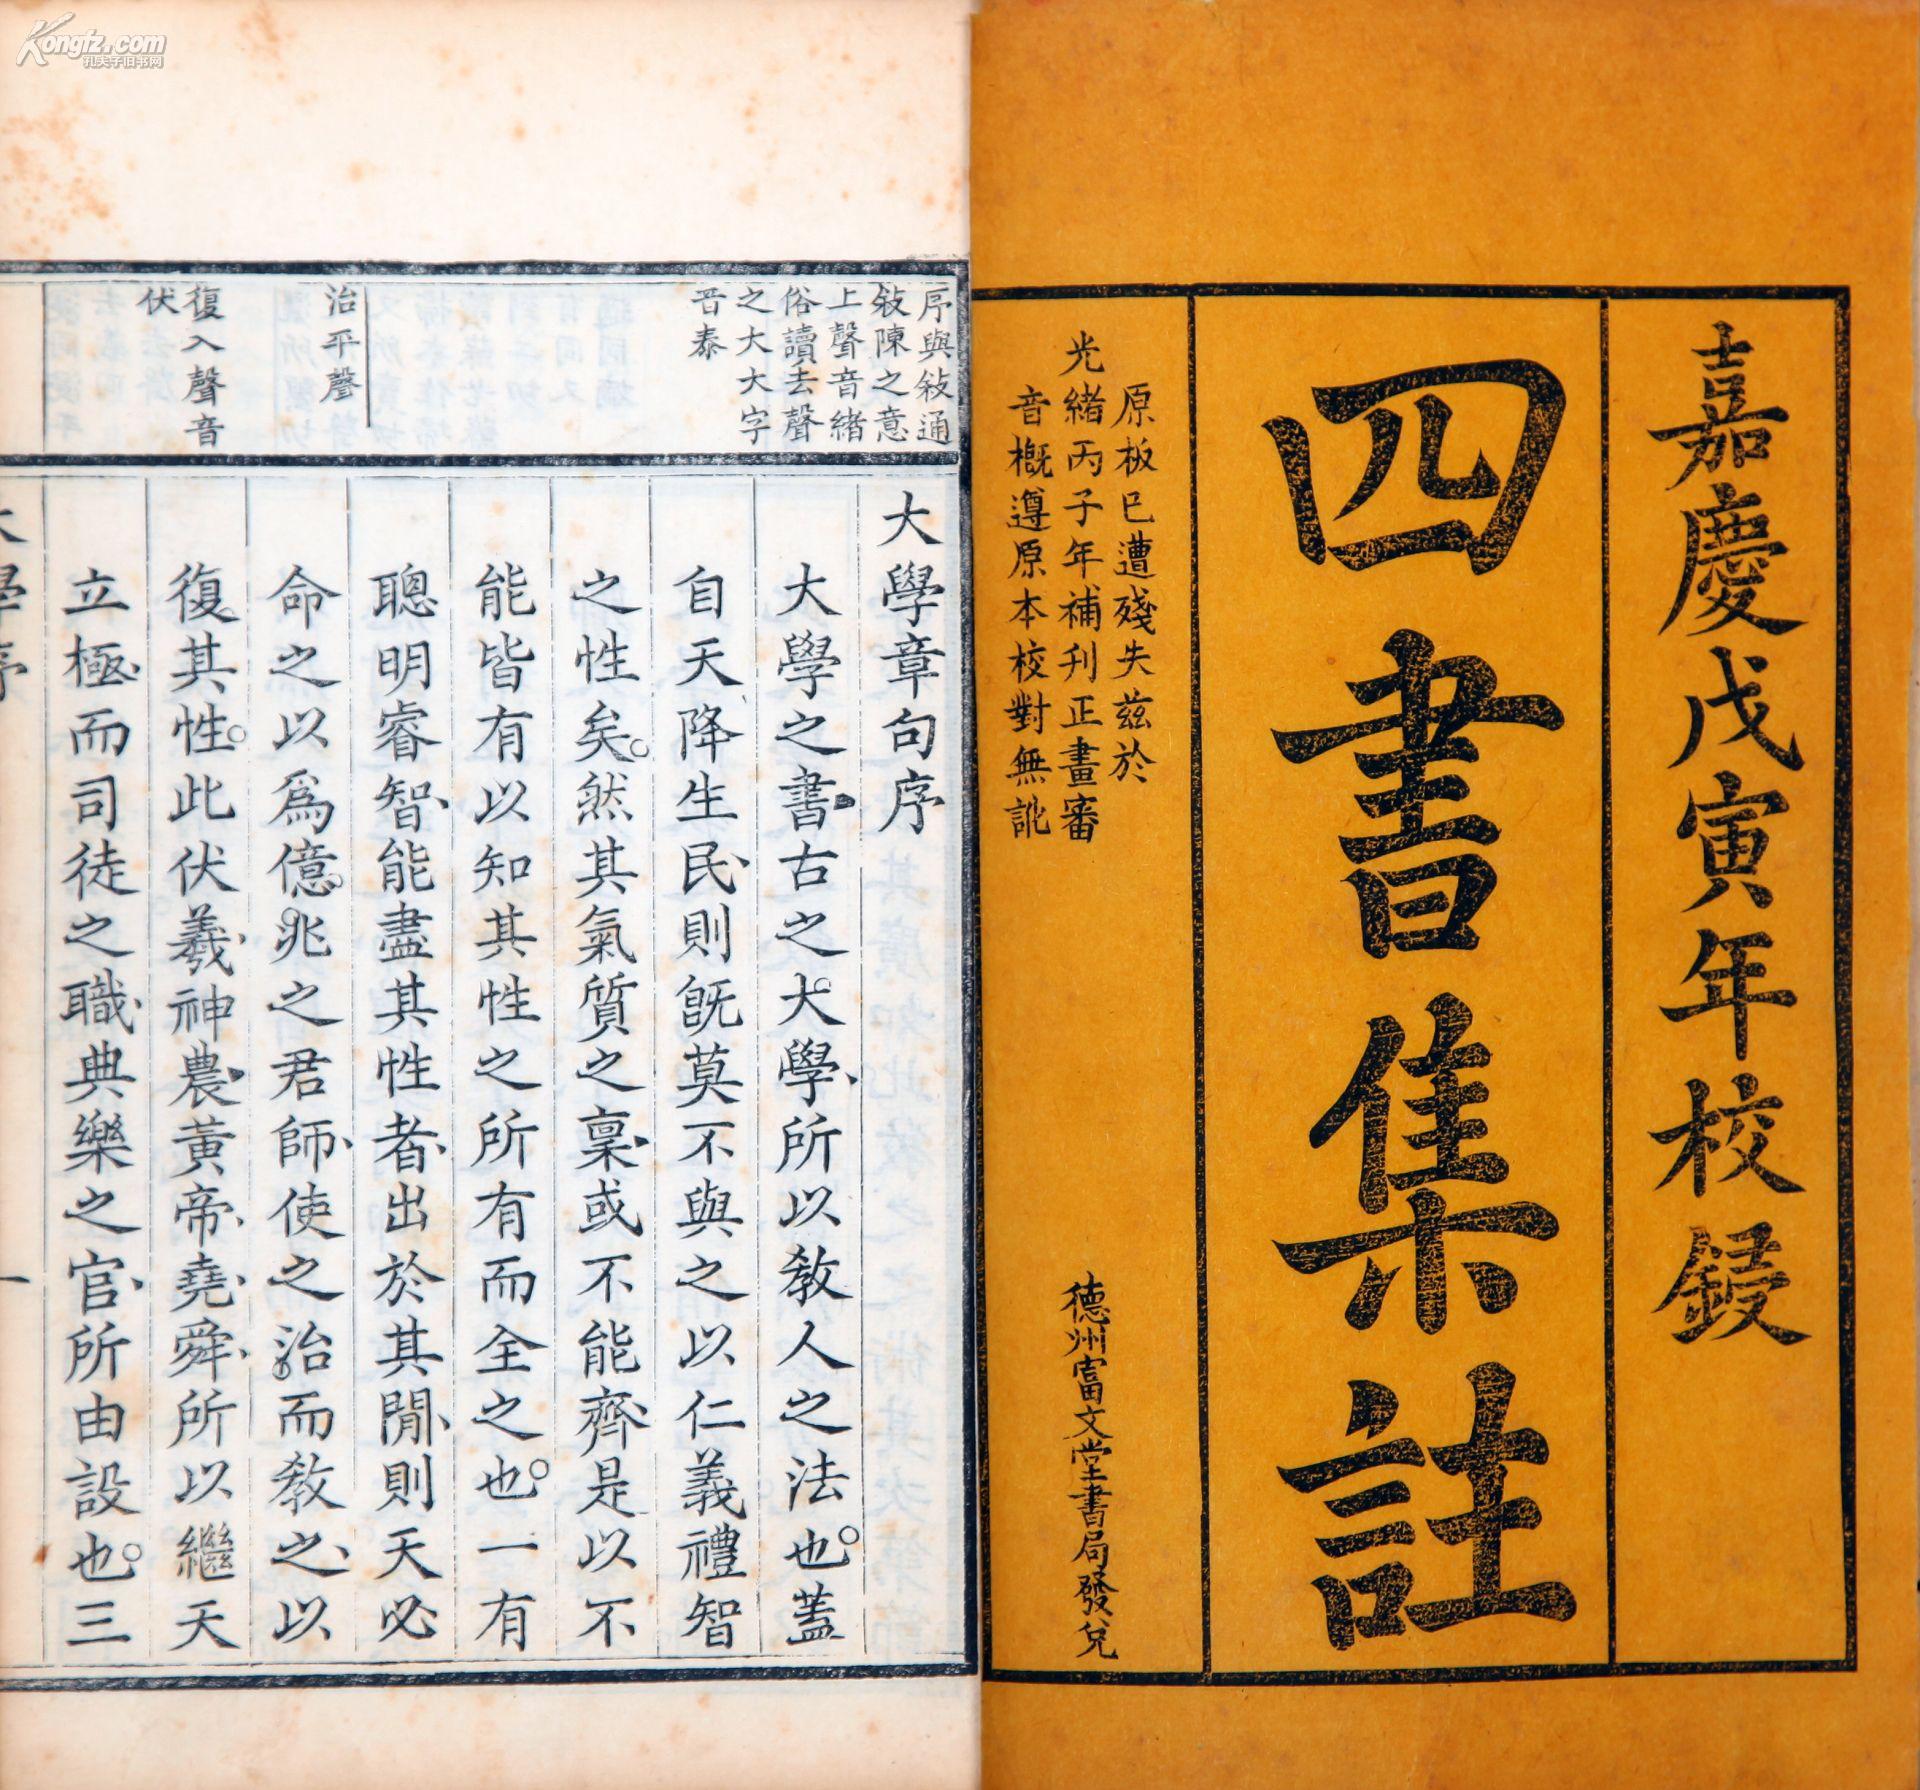 Kongfz.com
孔夫子旧书网
嘉慶戊寅年校鋟
四書集註
原板已遭殘失茲於
光緒丙子年補刋正畫審
音槪遵原本校對無訛
德州富文堂書局發兌
序與敍通
敍陳之意
上聲音緒
俗讀去聲
之大大字
音泰
治平聲
復入聲音
伏
大學章句序
大學之書古之大學所以敎人之法也蓋
自天降生民則旣莫不與之以仁義禮智
之性矣然其氣質之稟或不能齊是以不
能皆有以知其性之所有而全之也一有
聰明睿智能盡其性者出於其閒則天必
命之以爲億兆之君師使之治而敎之以
復其性此伏羲神農黃帝堯舜所以繼天
立極而司徒之職典樂之官所由設也三
大學序
一